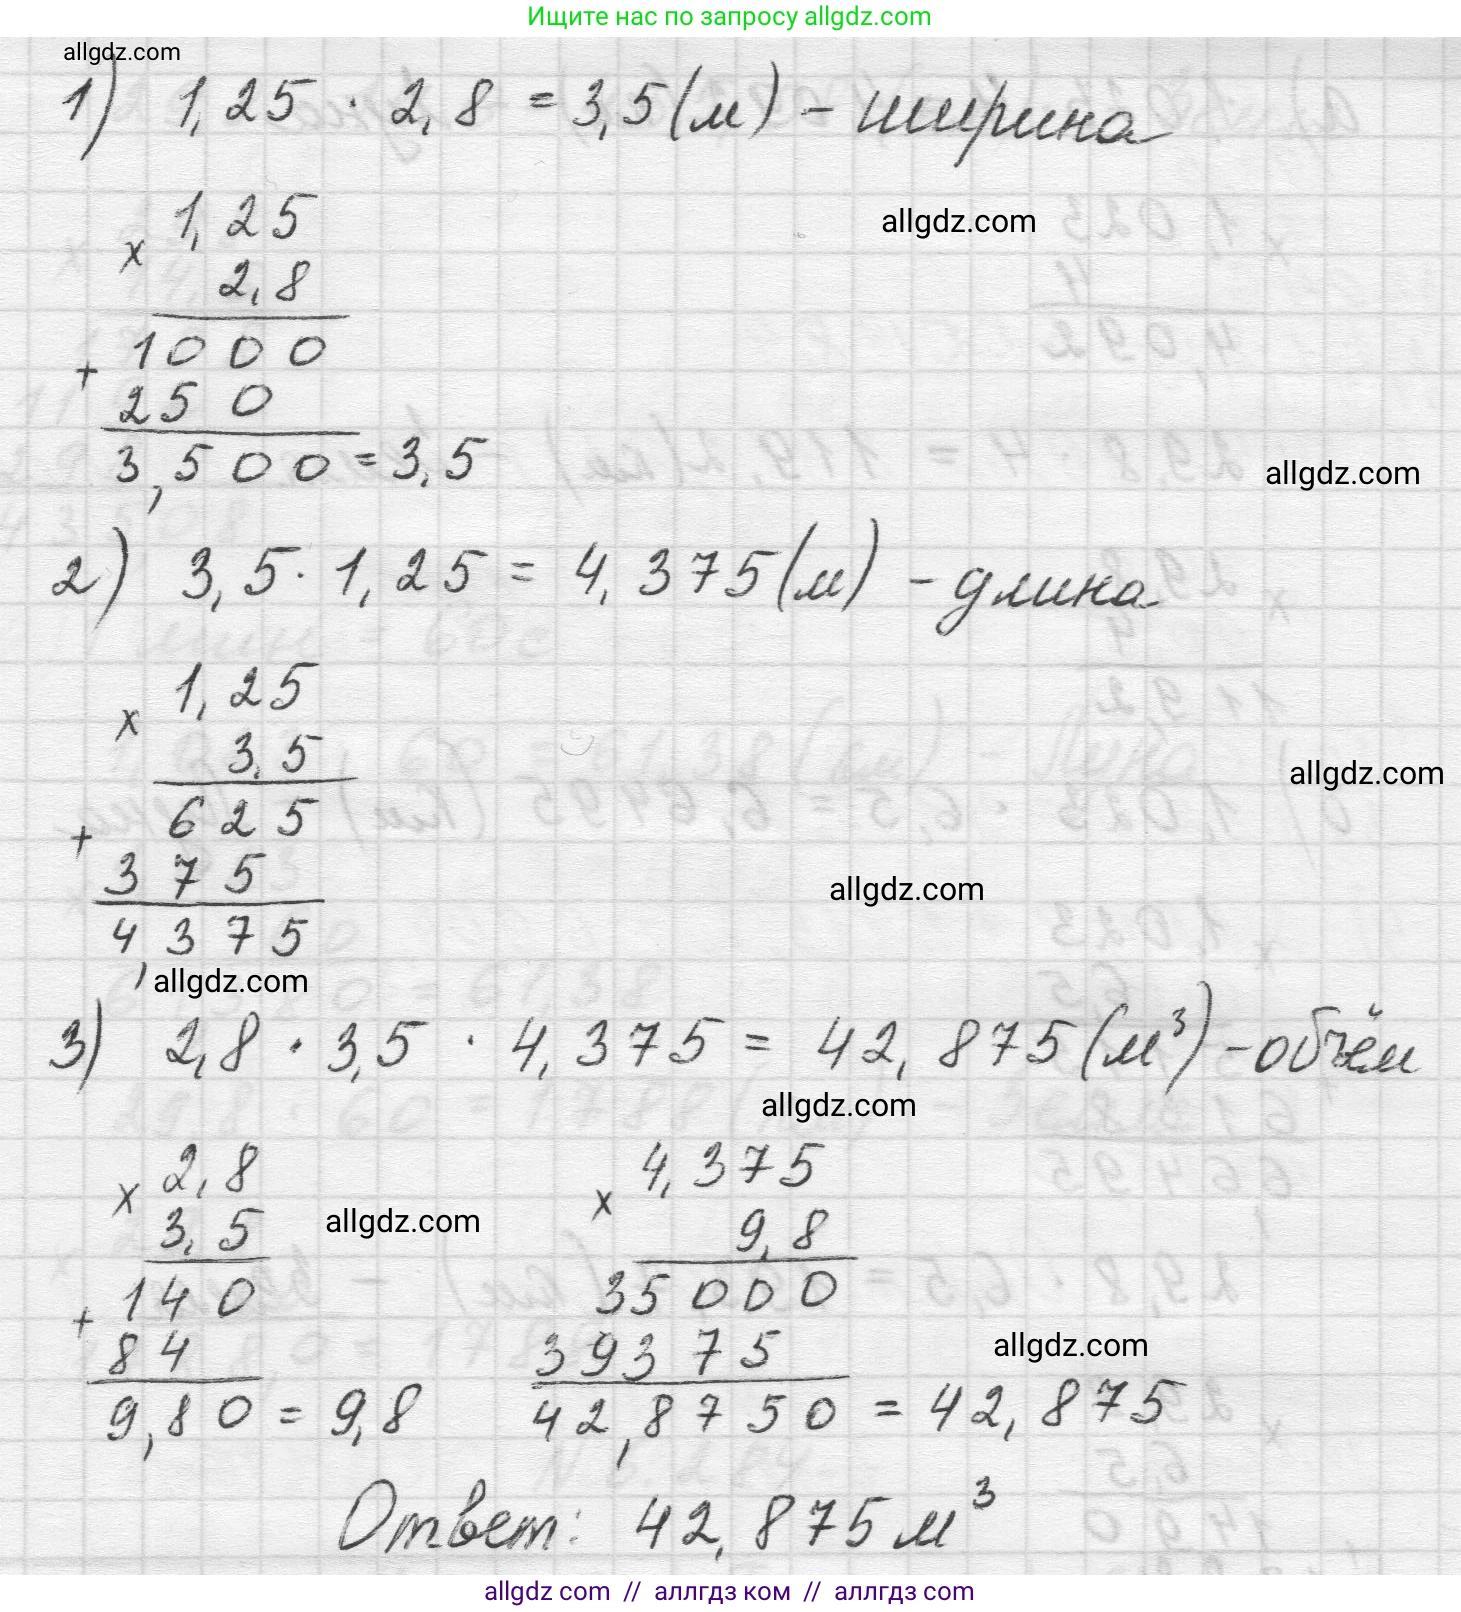 Ищите нас по запросу allgdz.com
allgdz.com
1) 1,25 · 2,8 = 3,5 (м) - ширина
1,25
allgdz.com
×
2,8
1000
+
250
3,500 = 3,5
allgdz.com
2) 3,5 · 1,25 = 4,375 (м) - длина
1,25
×
3,5
allgdz.com
625
+
375
allgdz.com
4,375
allgdz.com
3) 2,8 · 3,5 · 4,375 = 42,875 (м³) - объём
allgdz.com
2,8 4,375
× ×
3,5 allgdz.com 9,8
140 35000
+
84 39375 allgdz.com
9,80 = 9,8 42,8750 = 42,875
Ответ: 42,875 м³
allgdz.com // аллгдз ком // аллгдз.com